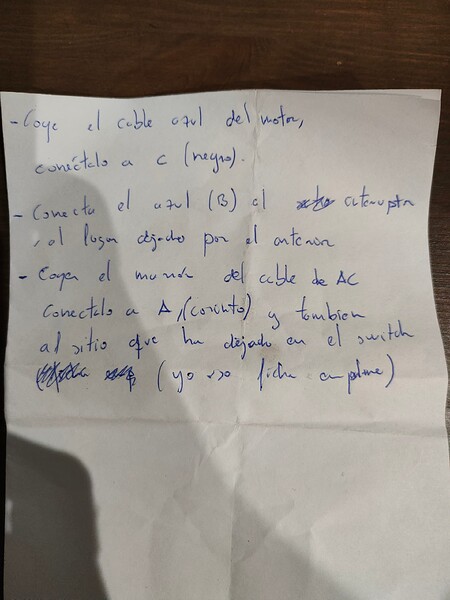 - Coge el cable azul del motor,
conéctalo a C (negro).
- Conecta el azul (B) al interruptor
, al lugar dejado por el anterior
- Coger el marrón del cable de AC
conectalo a A, (corinto) y tambien
al sitio que ha dejado en el switch
(yo uso ficha empalme)